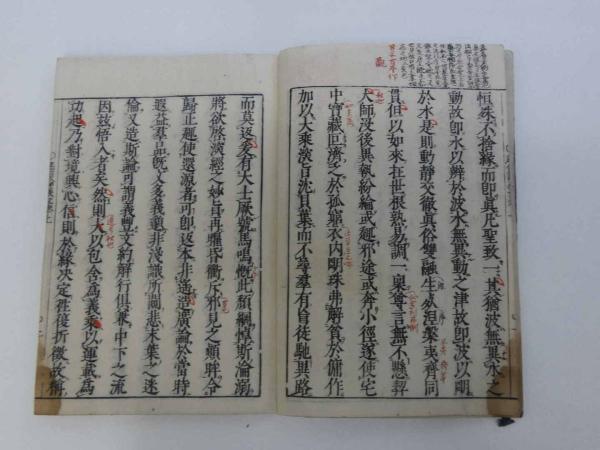 恒殊不捨緣而即真凡聖致一其猶波無異水之
動故即水以辨於波水無異動之津故即波以明
於水是則動靜交徹真俗雙融生死涅槃夷齊同
貫但以如來在世根熟易調一稟尊言無不懸契
大師没後異執紛綸或趣邪途或奔小徑遂使宅
中寶藏匱濟乏於孤窮衣内明珠弗解貧於傭作
加以大乘深旨沉貝葉而不尋羣有盲徒馳異路
而莫返爰有大士厥號馬鳴慨此頹綱悼斯淪溺
將欲啟深經之妙旨再曜昏衢斥邪見之顛眸令
歸正趣使還源者可即返本非遥造廣論於當時
遐益羣品既文多義邈非淺識所闚悲末葉之迷
倫又造斯論可謂義豐文約解行俱兼中下之流
因茲悟入者矣然則大以包含為義乘以運載為
功起乃對境興心信則於緣決定往復折徵故稱